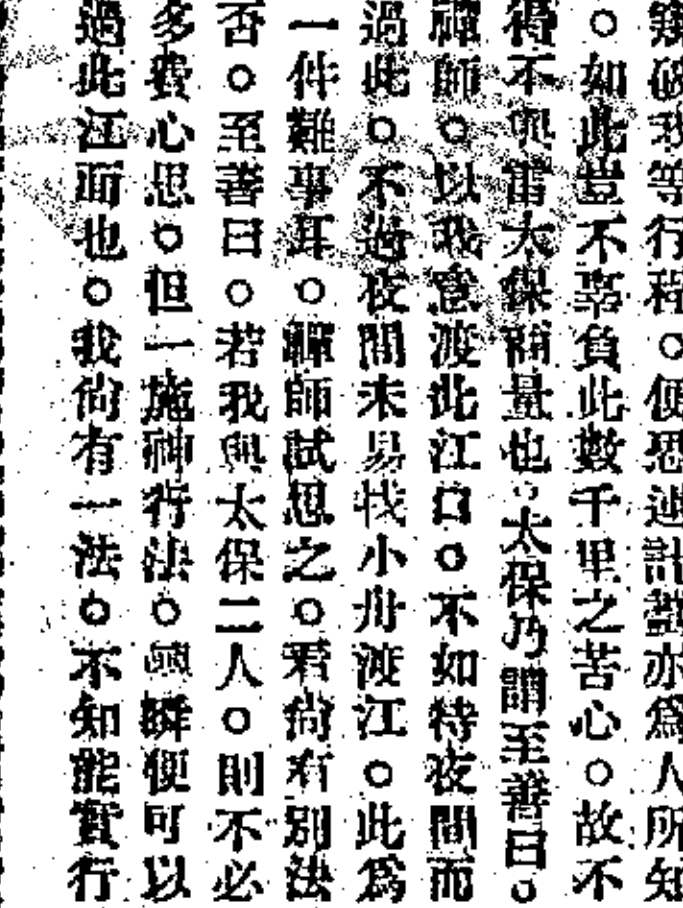 類破我等行程。便恐述計劃亦爲人所知
。如此豈不辜負此數千里之苦心。故不
得不與雷太保商量也。太保乃謂至善曰。
禪師。以我意渡此江口。不如待夜間而
過此。不過夜間未易找小舟渡江。此爲
一件難事耳。禪師試思之。看尙有別法
否。至善曰。若我與太保二人。則不必
多費心思。但一施神行法。轉瞬便可以
過此江面也。我尙有一法。不知能實行